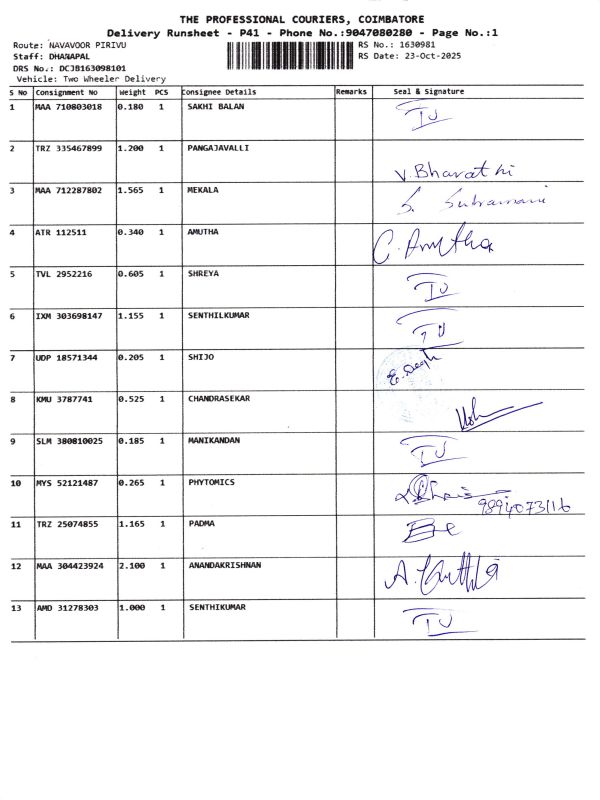 THE PROFESSIONAL COURIERS, COIMBATORE
Delivery Runsheet - P41 - Phone No.:9047080280 - Page No.:1
Route: NAVAVOOR PIRIVU
RS No.: 1630981
Staff: DHANAPAL
RS Date: 23-Oct-2025
DRS No.: DCJB163098101
Vehicle: Two Wheeler Delivery
S No Consignment No Weight PCS Consignee Details Remarks Seal & Signature
1 MAA 710803018 0.180 1 SAKHI BALAN
2 TRZ 335467899 1.200 1 PANGAJAVALLI V. Bharathi
3 MAA 712287802 1.565 1 MEKALA S.
4 ATR 112511 0.340 1 AMUTHA C. Amutha
5 TVL 2952216 0.605 1 SHREYA
6 IXM 303698147 1.155 1 SENTHILKUMAR
7 UDP 18571344 0.205 1 SHIJO
8 KMU 3787741 0.525 1 CHANDRASEKAR
9 SLM 380810025 0.185 1 MANIKANDAN
10 MYS 52121487 0.265 1 PHYTOMICS
11 TRZ 25074855 1.165 1 PADMA
12 MAA 304423924 2.100 1 ANANDAKRISHNAN
13 AMD 31278303 1.000 1 SENTHIKUMAR